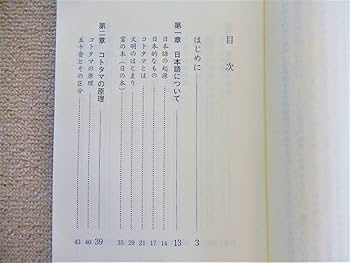 目次
はじめに 3
第一章 日本語について 13
日本語の起源 14
日本的なもの 17
コトタマとは 21
文明のはじまり 29
霊の本(日の本) 35
第二章 コトタマの原理 39
コトタマの原理 40
五十音とその区分 43